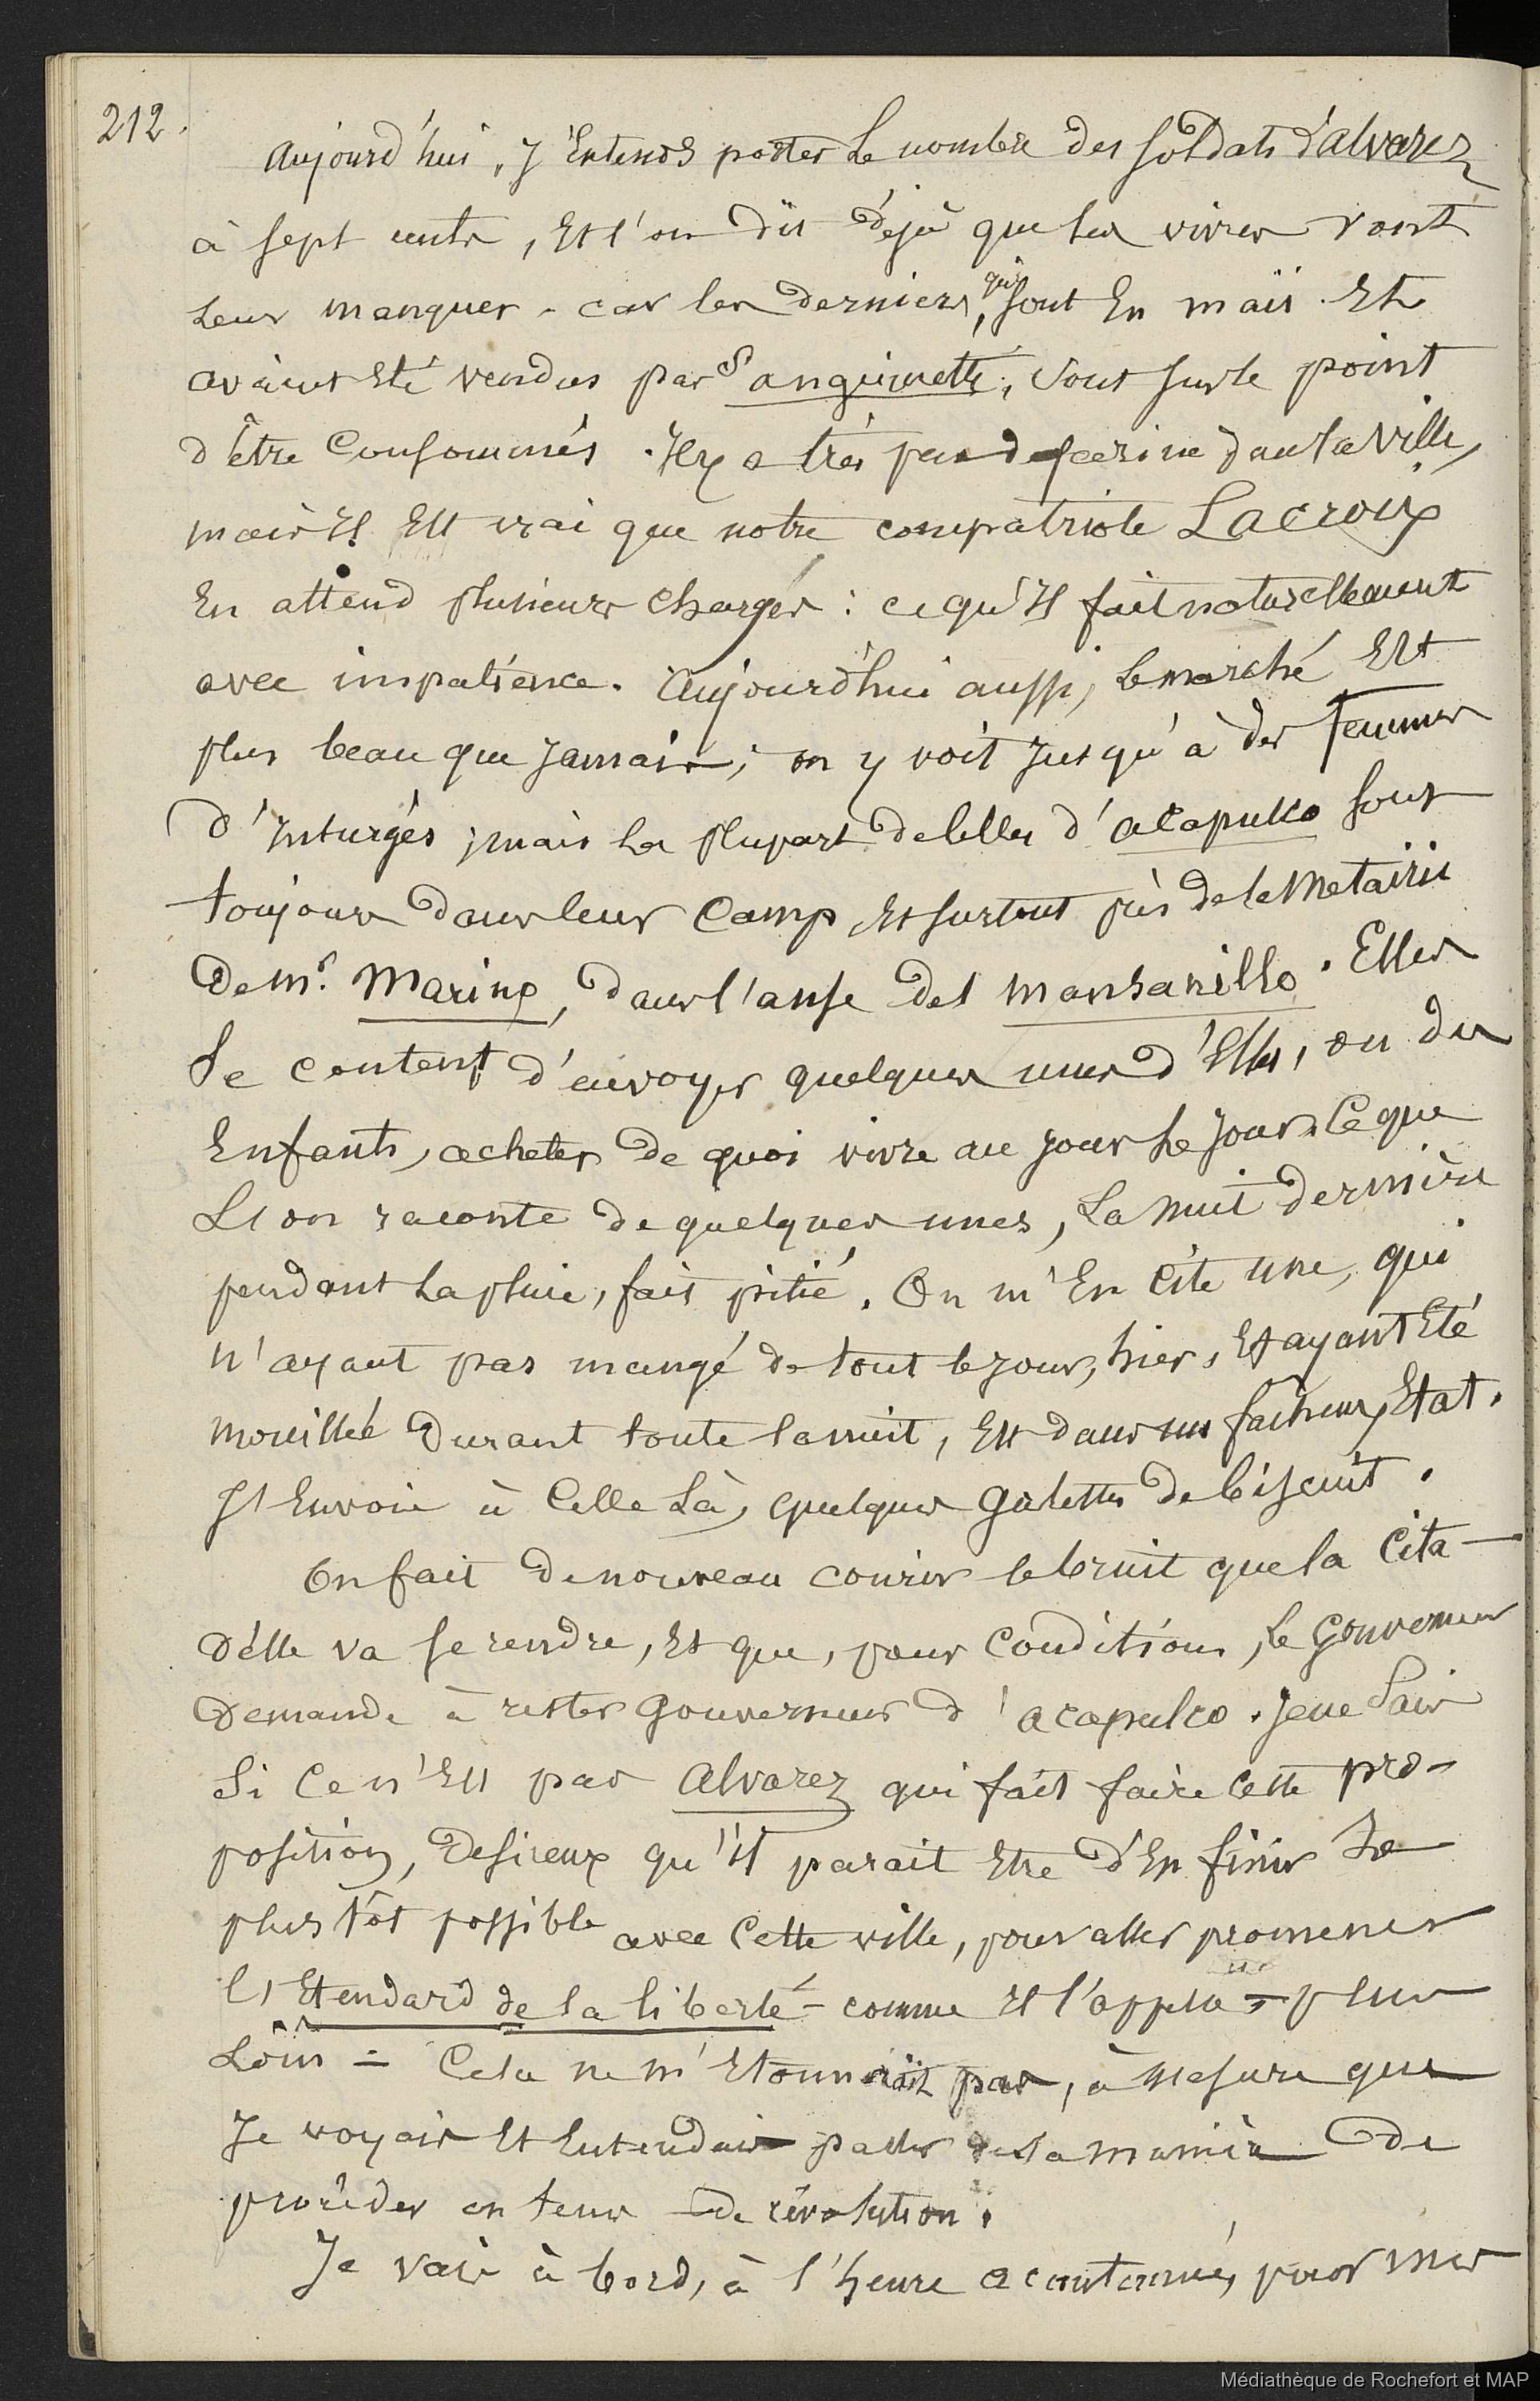 212.
Aujourd'hui, j'Entends porter Le nombre des soldats d'alvarez
à sept cents, Et l'on dit déjà que les vivres vont
Leur manquer - car les derniers, qui sont En maïs Et
avaient Eté vendus par S anguinette, sont sur le point
d'être Consommés. Il y a très peu de farine dans la ville,
mais Il Est vrai que notre compatriote Lacroix
En attend plusieurs charges : ce qu'Il fait naturellement
avec impatience. Aujourd'hui aussi, le marché Est
plus beau que Jamais ; on y voit Jusqu'à des femmes
d'Insurgés ; mais La plupart de celles d'acapulco sont
toujours dans leur Camp, Et surtout près de la Metairie
de Mr. Marinx, dans l'anse del mansanillo. Elles
Se content d'envoyer quelques unes d'Elles, ou des
Enfants, acheter de quoi vivre au jour Le jour. Ce que
L'on raconte de quelques unes, La nuit dernière
pendant La pluie, fait pitié. On m'En cite une, qui
n'ayant pas mangé de tout le jour, hier, Et ayant Eté
mouillée Durant toute la nuit, Est dans un facheux Etat.
J'Envoie à Celle Là, quelques galettes de biscuit.
On fait de nouveau courir le bruit que la Cita-
delle va se rendre, Et que, pour Conditions, Le gouverneur
demande à rester gouverneur d'acapulco. Je ne Sais
Si Ce n'Est pas Alvarez qui fait faire Cette pro-
position, Desireux qu'Il parait Etre d'En finir Le
plus tôt possible avec Cette ville, pour aller promener
l'Etendard de la liberté - comme Il l'appelle - plus
Loin = Cela ne m'Etonnait pas, à mesure que
Je voyais Et Entendais parler de sa manière de
procéder en tems de révolution.
Je vais à bord, à l'heure acoutumée, pour mes
Médiathèque de Rochefort et MAP